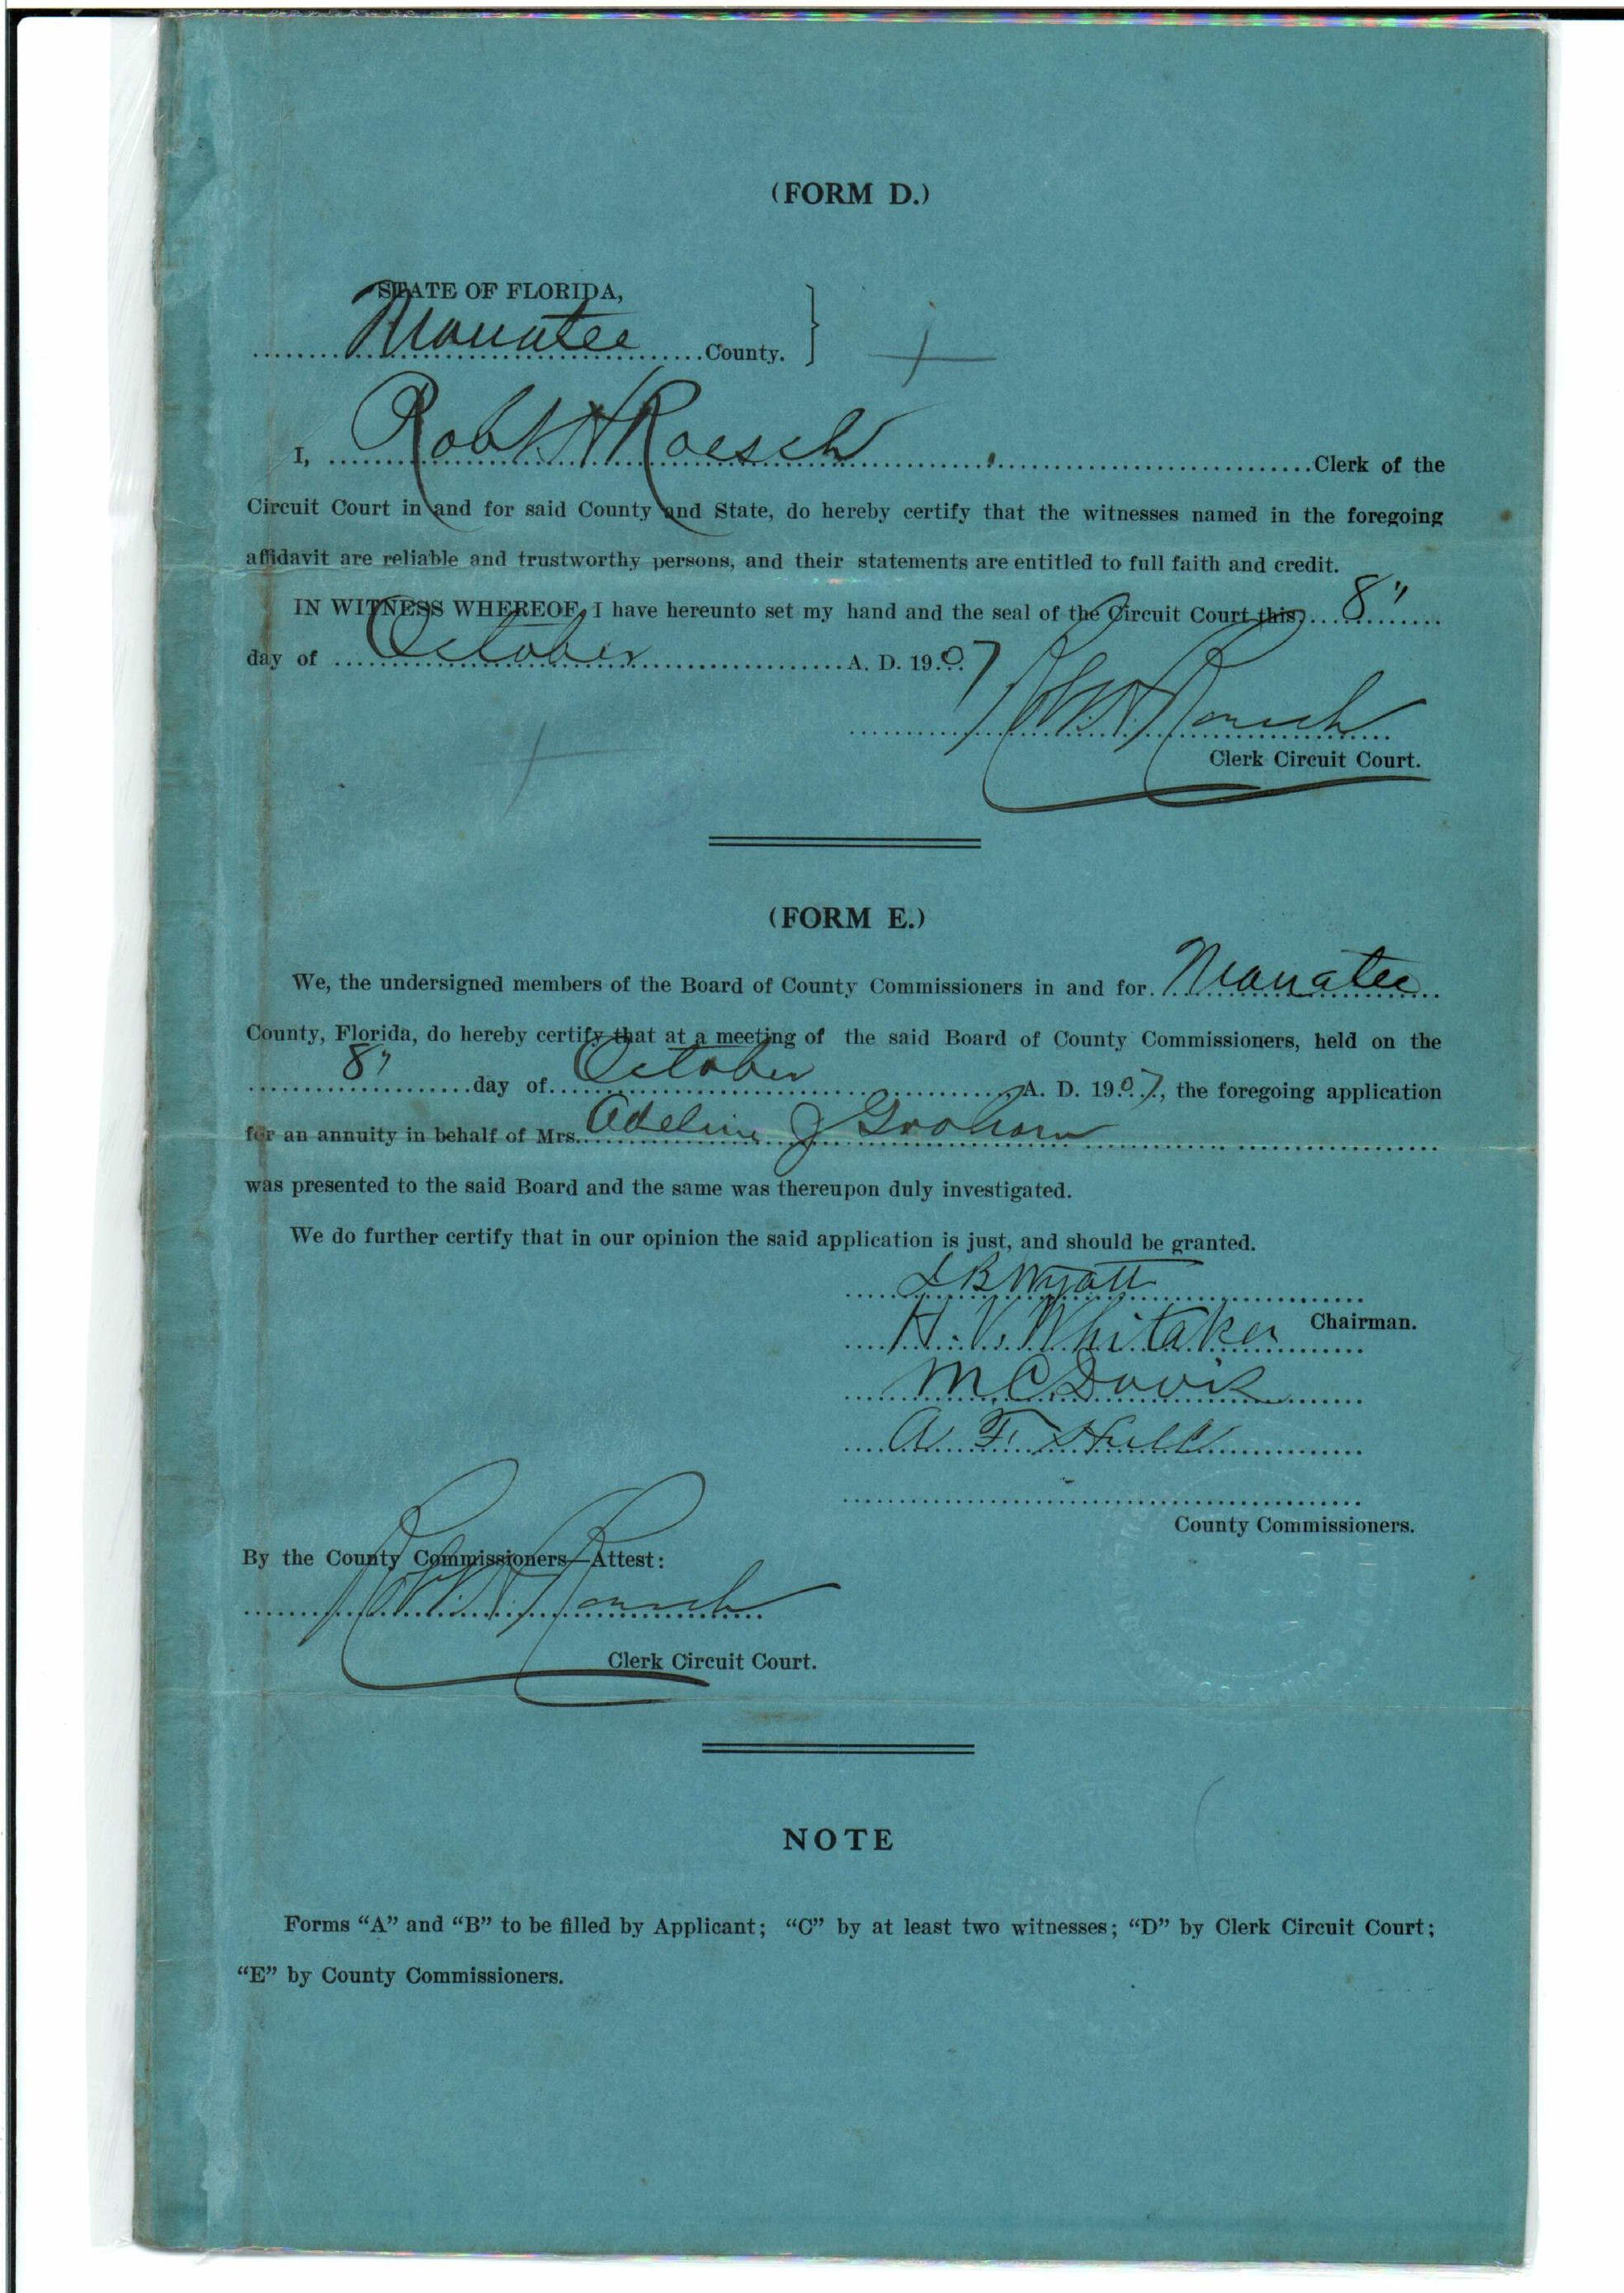 (FORM D.)
STATE OF FLORIDA,
Manatee County.
I, Robt H Roesch Clerk of the
Circuit Court in and for said County and State, do hereby certify that the witnesses named in the foregoing
affidavit are reliable and trustworthy persons, and their statements are entitled to full faith and credit.
IN WITNESS WHEREOF, I have hereunto set my hand and the seal of the Circuit Court this, 8"
day of October A. D. 1907
Robt H Roesch
Clerk Circuit Court.
(FORM E.)
We, the undersigned members of the Board of County Commissioners in and for Manatee
County, Florida, do hereby certify that at a meeting of the said Board of County Commissioners, held on the
8" day of October A. D. 1907, the foregoing application
for an annuity in behalf of Mrs. Adeline J Graham
was presented to the said Board and the same was thereupon duly investigated.
We do further certify that in our opinion the said application is just, and should be granted.
B Wyatt
Chairman.
H. V. Whitaker
M C Davis
A. F. Hull
County Commissioners.
By the County Commissioners—Attest:
Robt H Roesch
Clerk Circuit Court.
NOTE
Forms “A” and “B” to be filled by Applicant; “C” by at least two witnesses; “D” by Clerk Circuit Court;
“E” by County Commissioners.